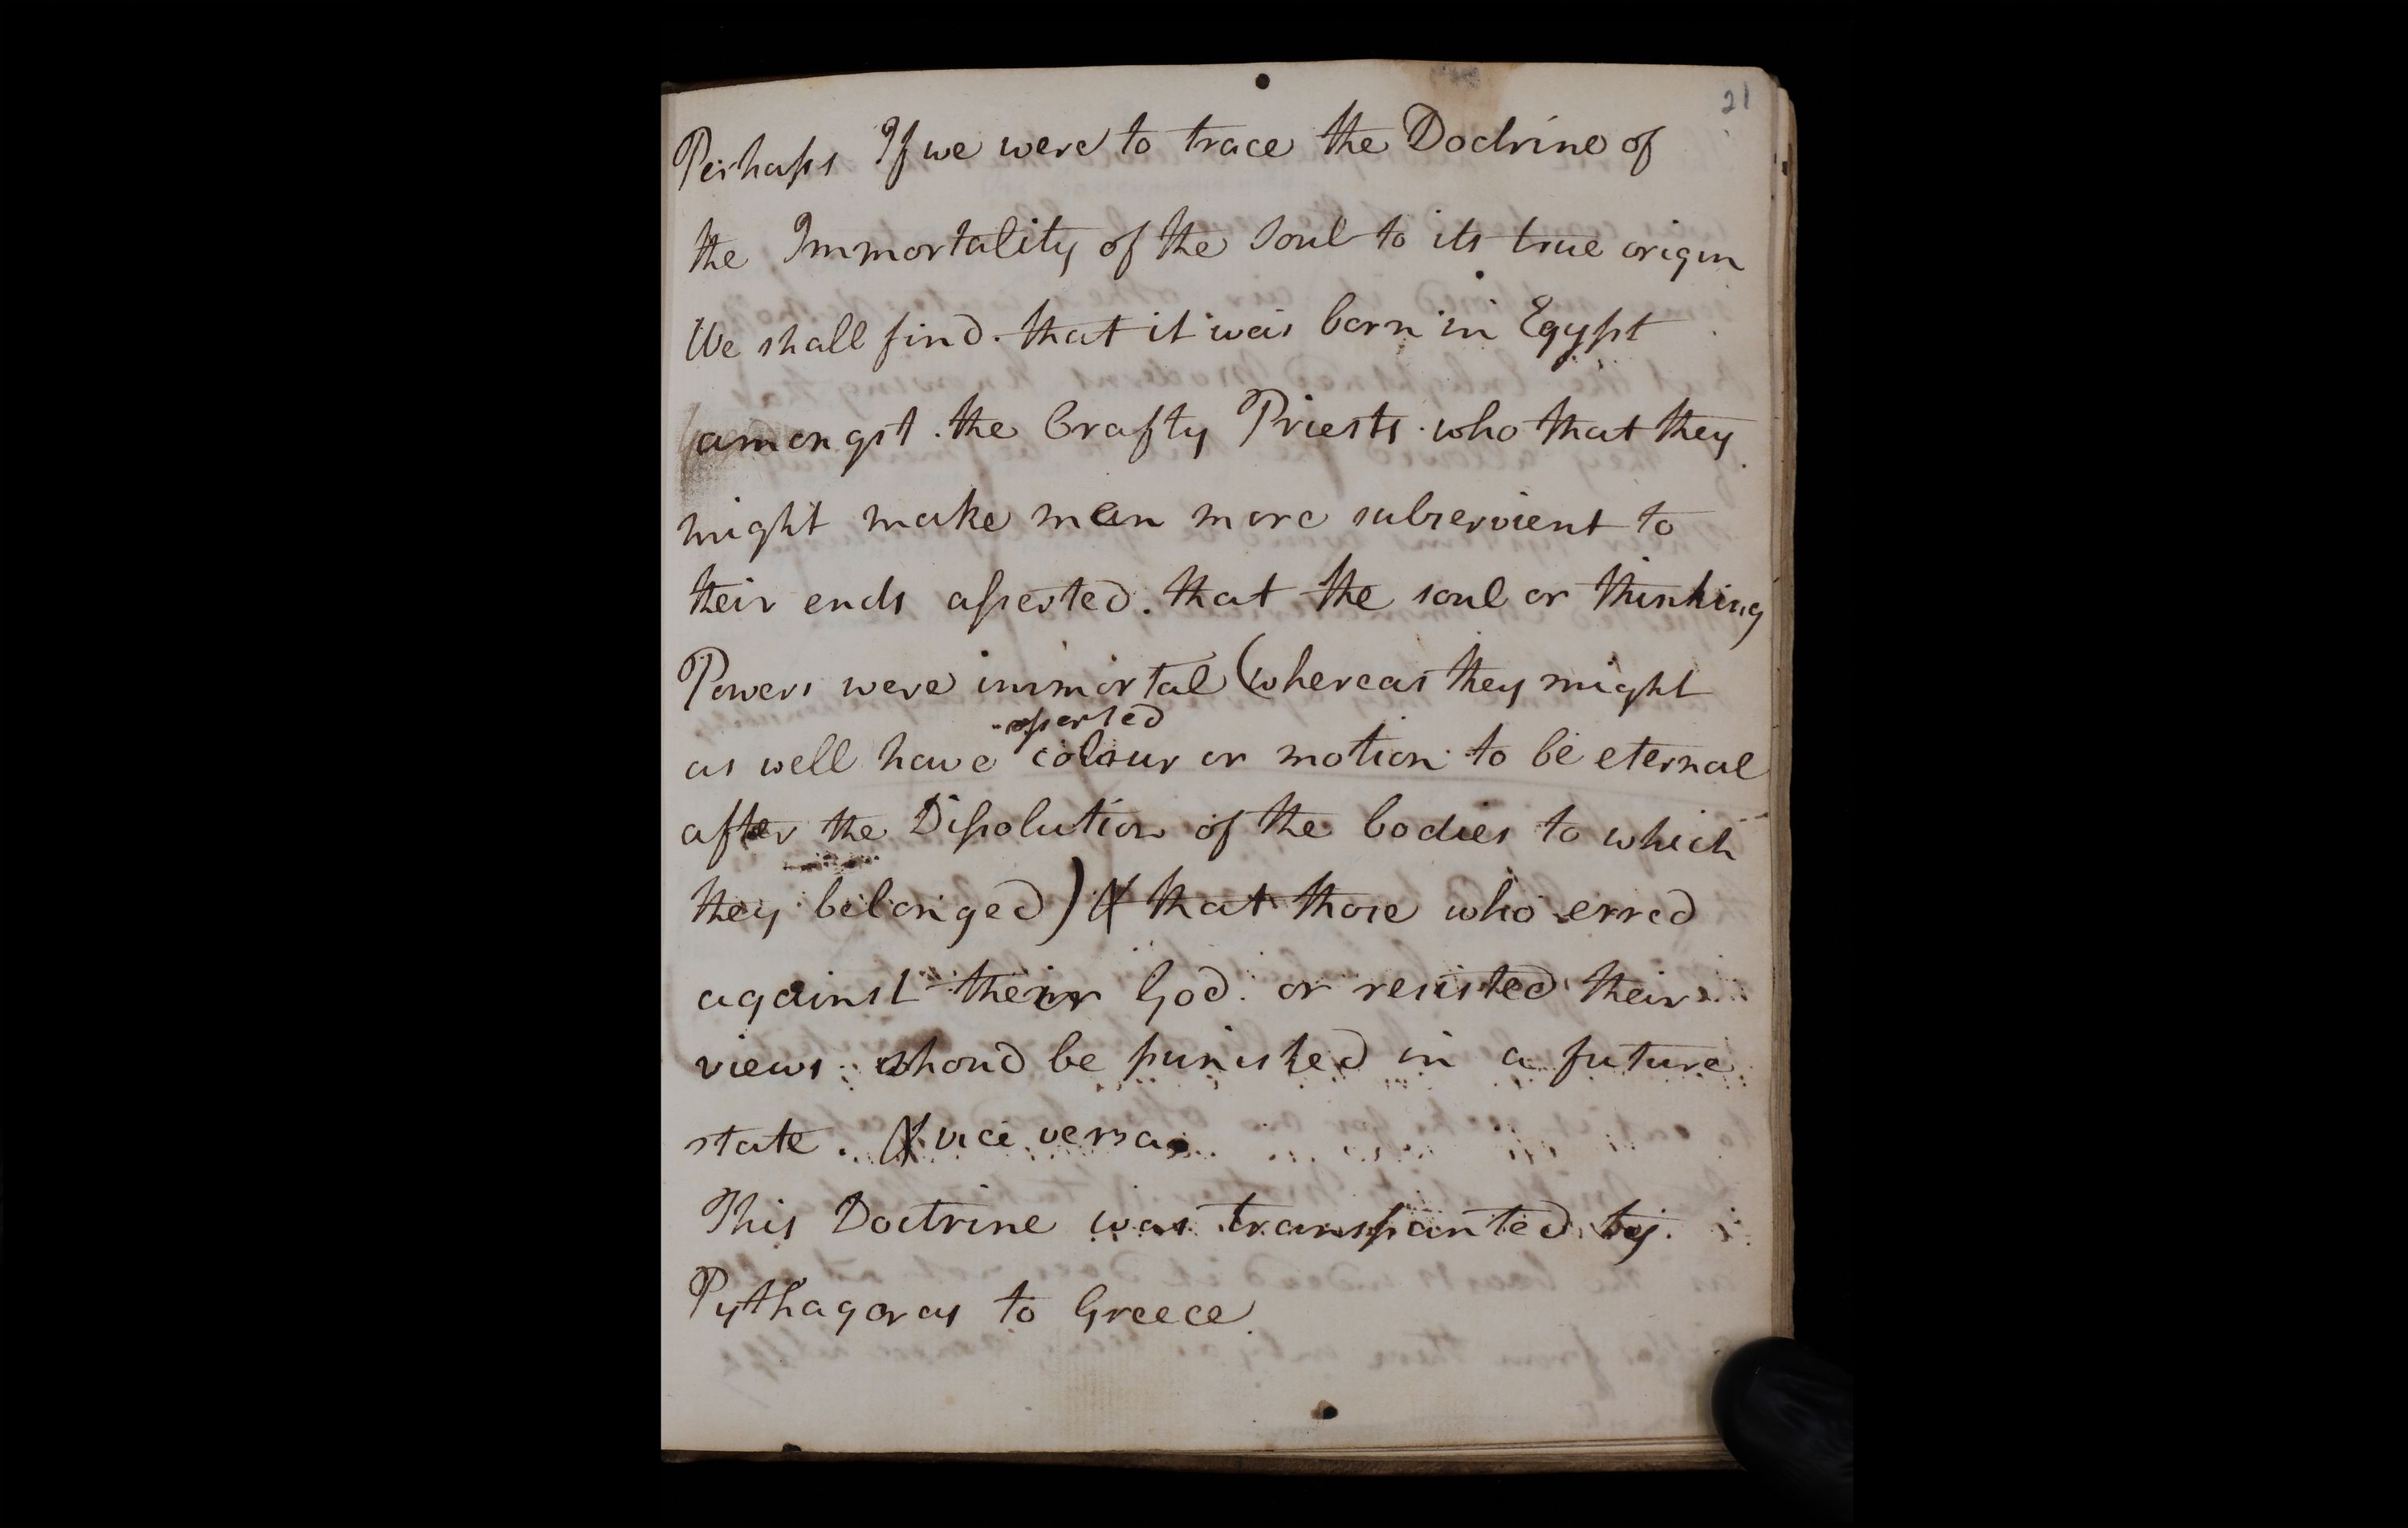 21
Perhaps If we were to trace the Doctrine of
the Immortality of the Soul to its true origin
We shall find. that it was born in Egypt
amongst the Crafty Priests who that they
might make men more subservient to
their ends asserted. that the soul or thinking
Powers were immortal (whereas they might
asserted
as well have colour or motion to be eternal
after the Dissolution of the bodies to which
they belonged) & that those who erred
against their God. or resisted their
views shoud be punished in a future
state. & vice versa.
This Doctrine was transpanted by
Pythagoras to Greece.